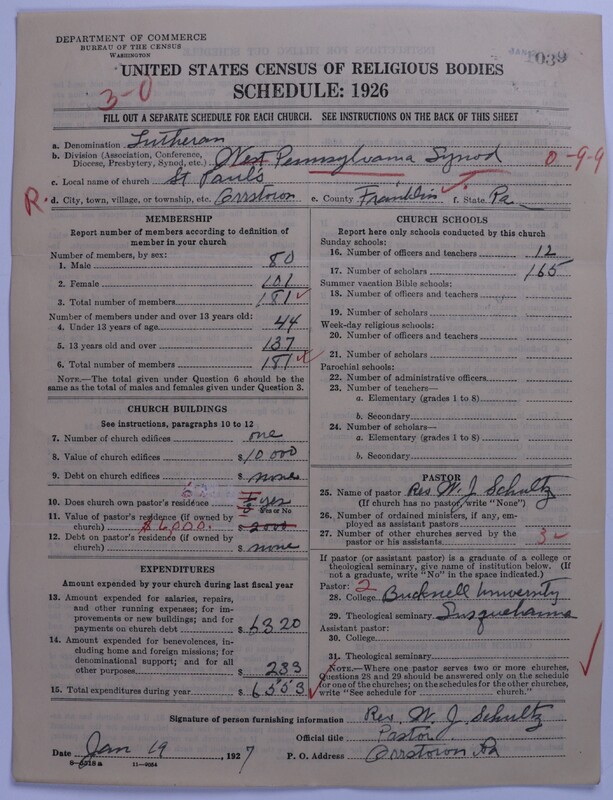 DEPARTMENT OF COMMERCE
BUREAU OF THE CENSUS
WASHINGTON
1039
UNITED STATES CENSUS OF RELIGIOUS BODIES
3-0
SCHEDULE: 1926
FILL OUT A SEPARATE SCHEDULE FOR EACH CHURCH. SEE INSTRUCTIONS ON THE BACK OF THIS SHEET
a. Denomination Lutheran
b. Division (Association, Conference, Diocese, Presbytery, Synod, etc.) West Pennsylvania Synod 0-9-9
c. Local name of church St Paul's
R d. City, town, village, or township, etc. Orrstown e. County Franklin f. State Pa
MEMBERSHIP
Report number of members according to definition of member in your church
Number of members, by sex:
1. Male 80
2. Female 101
3. Total number of members 181
Number of members under and over 13 years old:
4. Under 13 years of age 44
5. 13 years old and over 137
6. Total number of members 181
NOTE.—The total given under Question 6 should be the same as the total of males and females given under Question 3.
CHURCH BUILDINGS
See instructions, paragraphs 10 to 12
7. Number of church edifices one
8. Value of church edifices $10 000
9. Debt on church edifices $ none
10. Does church own pastor's residence yes
Yes or No
11. Value of pastor's residence (if owned by church) $6,000. $2000
12. Debt on pastor's residence (if owned by church) $ none
EXPENDITURES
Amount expended by your church during last fiscal year
13. Amount expended for salaries, repairs, and other running expenses; for improvements or new buildings; and for payments on church debt $6320
14. Amount expended for benevolences, including home and foreign missions; for denominational support; and for all other purposes 233
15. Total expenditures during year $6553
CHURCH SCHOOLS
Report here only schools conducted by this church
Sunday schools:
16. Number of officers and teachers 12
17. Number of scholars 165
Summer vacation Bible schools:
18. Number of officers and teachers
19. Number of scholars
Week-day religious schools:
20. Number of officers and teachers
21. Number of scholars
Parochial schools:
22. Number of administrative officers
23. Number of teachers—
a. Elementary (grades 1 to 8)
b. Secondary
24. Number of scholars—
a. Elementary (grades 1 to 8)
b. Secondary
PASTOR
25. Name of pastor Rev W. J. Schultz
(If church has no pastor, write "None")
26. Number of ordained ministers, if any, employed as assistant pastors
27. Number of other churches served by the pastor or his assistants 3
If pastor (or assistant pastor) is a graduate of a college or theological seminary, give name of institution below. (If not a graduate, write "No" in the space indicated.)
Pastor: 2
28. College Bucknell University
29. Theological seminary Susquehanna
Assistant pastor:
30. College
31. Theological seminary
NOTE.—Where one pastor serves two or more churches, Questions 28 and 29 should be answered only on the schedule for one of the churches; on the schedules for the other churches, write "See schedule for church."
Signature of person furnishing information Rev. W. J. Schultz
Official title Pastor
Date Jan 19, 1927 P. O. Address Orrstown Pa
8-6018 a 11-9084